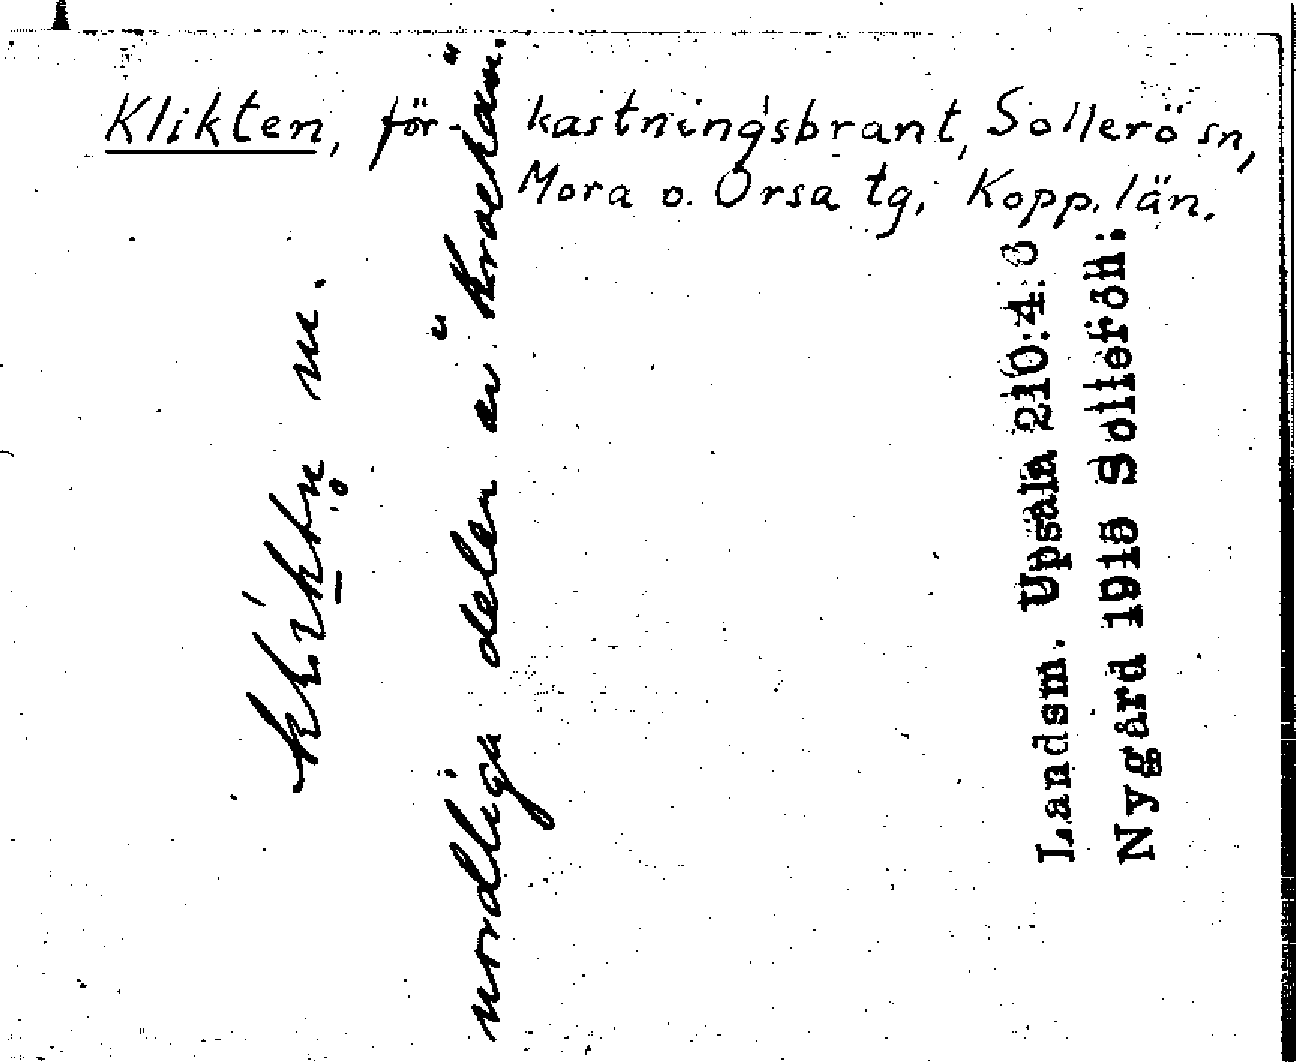 Klikten, för- kastningsbrant, Sollerö sn,
Mora o. Orsa tg, Kopp. län.
nordliga delen av
Landsm. Upsala 210:4
Nygård 1918 Sollerön: